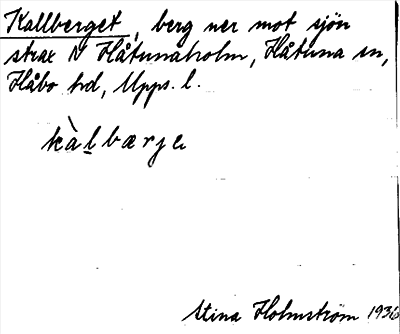 Kallberget, berg ner mot sjön
strax N Håtunaholm, Håtuna sn,
Håbo hd, Upps. l.
kàlbærje
Stina Holmström 1936